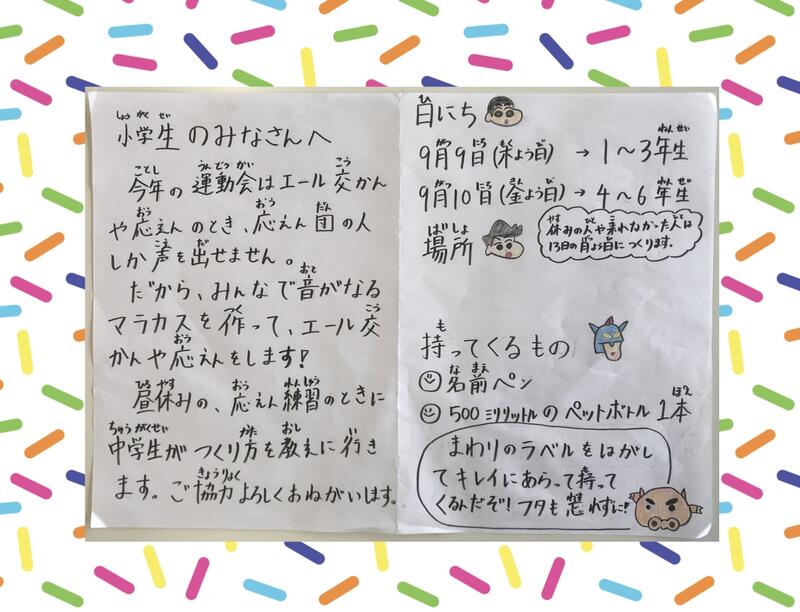 小学生のみなさんへ
今年の運動会はエール交かん
や応えんのとき、応えん団の人
しか声を出せません。
だから、みんなで音がなる
マラカスを作って、エール交
かんや応えんをします!
昼休みの、応えん練習のときに
中学生がつくり方を教えに行き
ます。ご協力よろしくおねがいします。
日にち
9月9日(木よう日) → 1〜3年生
9月10日(金よう日) → 4〜6年生
休みの人や来れなかった人は
13日の月よう日につくります。
場所
持ってくるもの
名前ペン
500ミリリットルのペットボトル1本
まわりのラベルをはがし
てキレイにあらって持って
くるんだぞ!フタも忘れずに!